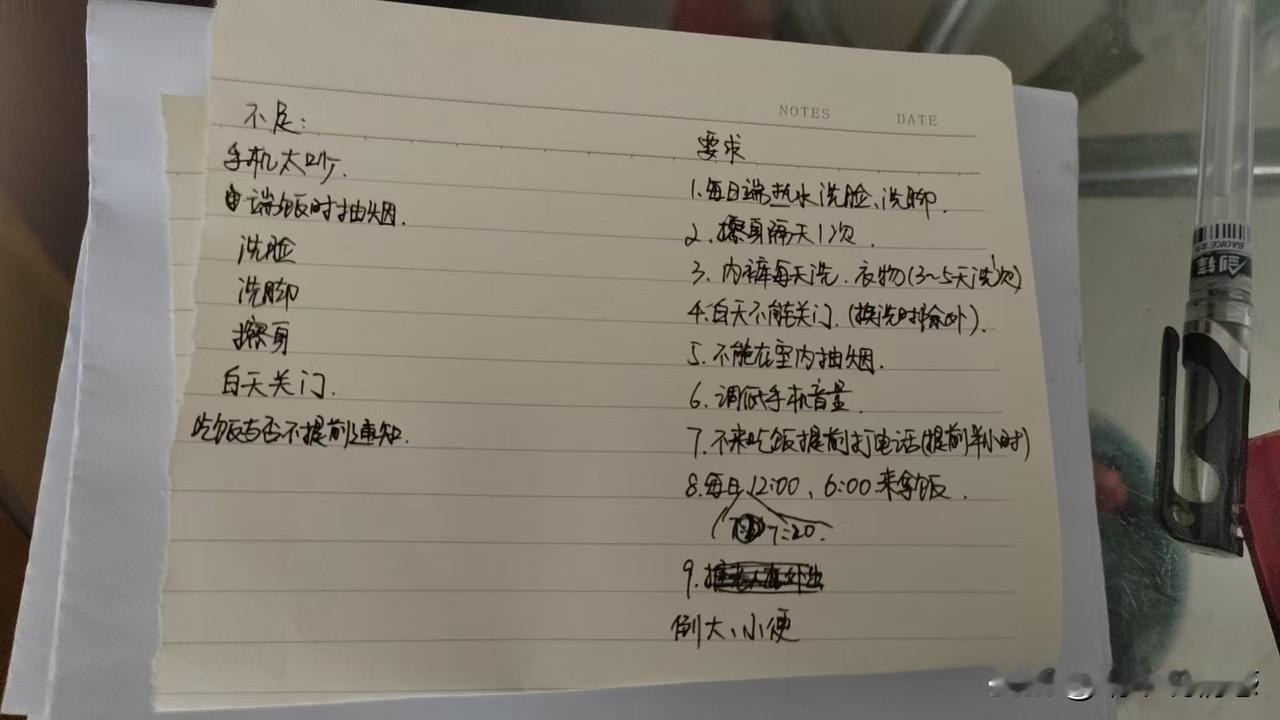 NOTES DATE
不足:
手机太吵.
端饭时抽烟.
洗脸
洗脚
擦身
白天关门.
吃饭与否不提前通知.
要求
1.每日端热水洗脸、洗脚.
2.擦身隔天1次.
3.内裤每天洗.衣物(3~5天洗1次)
4.白天不能关门.(换洗时除外).
5.不能在室内抽烟.
6.调低手机音量.
7.不来吃饭提前打电话(提前半小时)
8.每日12:00、6:00来拿饭.
7:20.
9.
倒大、小便
BAOKE